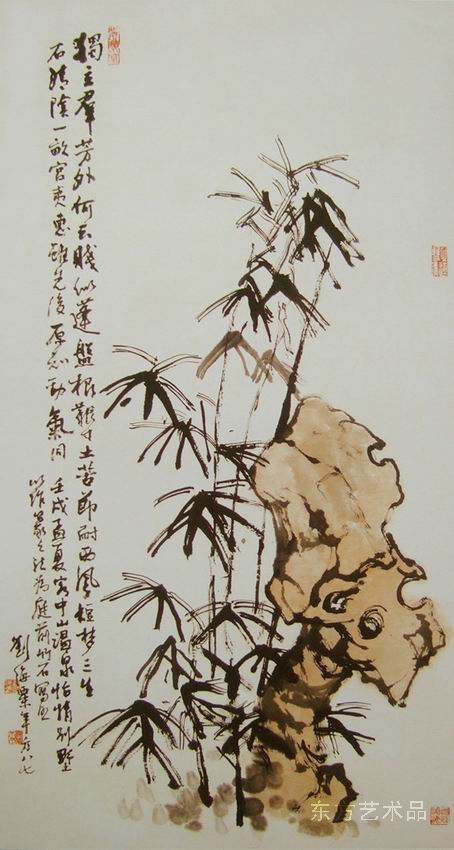 獨立羣芳外何云賤似蓬盤根艱寸土苦節耐西風短夢三生
石清陰一畝宮夷惠雖先後原知勁氣同 壬戌孟夏客中山溫泉怡情別墅
以作篆之法為庭前竹石寫
劉海粟年方八七
东方艺术品